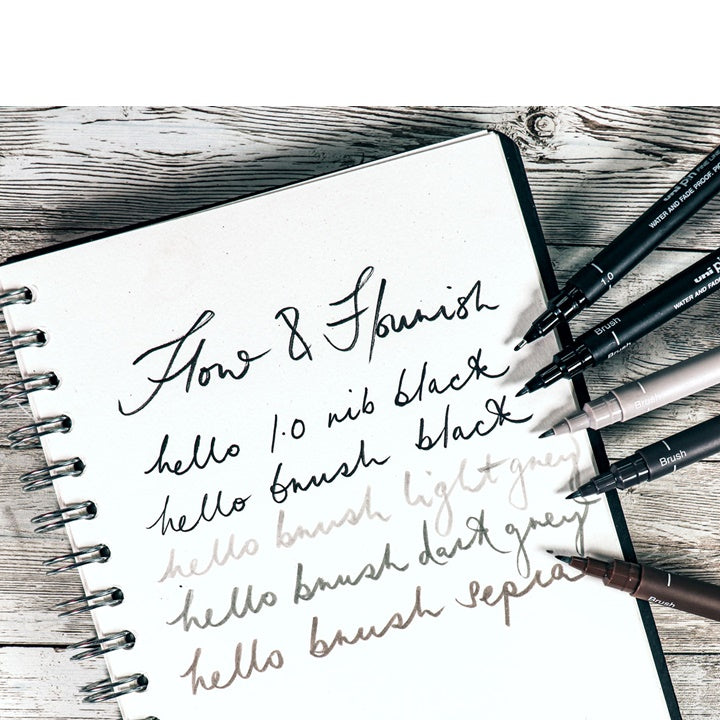 Flow & Flourish
hello 1.0 nib black
hello brush black
hello brush light grey
hello brush dark grey
hello brush sepia
uni pin FINE LINE
WATER AND FADE PROOF, P
1.0
uni pi
WATER AND FADE PR
Brush
Brush
Brush
Brush
Brush